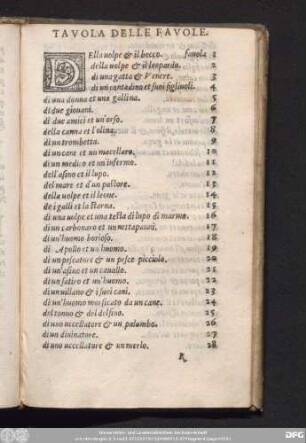 TAVOLA DELLE FAVOLE.
DElla uolpe & il becco. fauola 1
della uolpe & il leopardo. 2
di una gatta & Venere. 3
di un contadino et suoi figliuoli. 4
di una donna et una gallina. 5
di due giouani. 6
di due amici et un'orso. 7
della canna et l'oliua. 8
di un trombetta. 9
di un cane et un macellaro. 10
di un medico et un'infermo. 11
dell'asino et il lupo. 12
del mare et d'un pastore. 13
della uolpe et il leone. 14
de i galli et la starna. 15
di una uolpe et una testa di lupo di marmo. 16
di un carbonaro et un nettapanni. 17
di un'huomo borioso. 18
di Apollo et uo huomo. 19
di un pescatore & un pesce picciolo. 20
di un'asino et un cauallo. 21
di un satiro et un'huomo. 22
di un uillano & i suoi cani. 23
di un'huomo morsicato da un cane. 24
del tonno & del delfino. 25
di uno uccellatore & un palumbo. 26
di un diuinatore. 27
di uno uccellatore & un merlo. 28
K